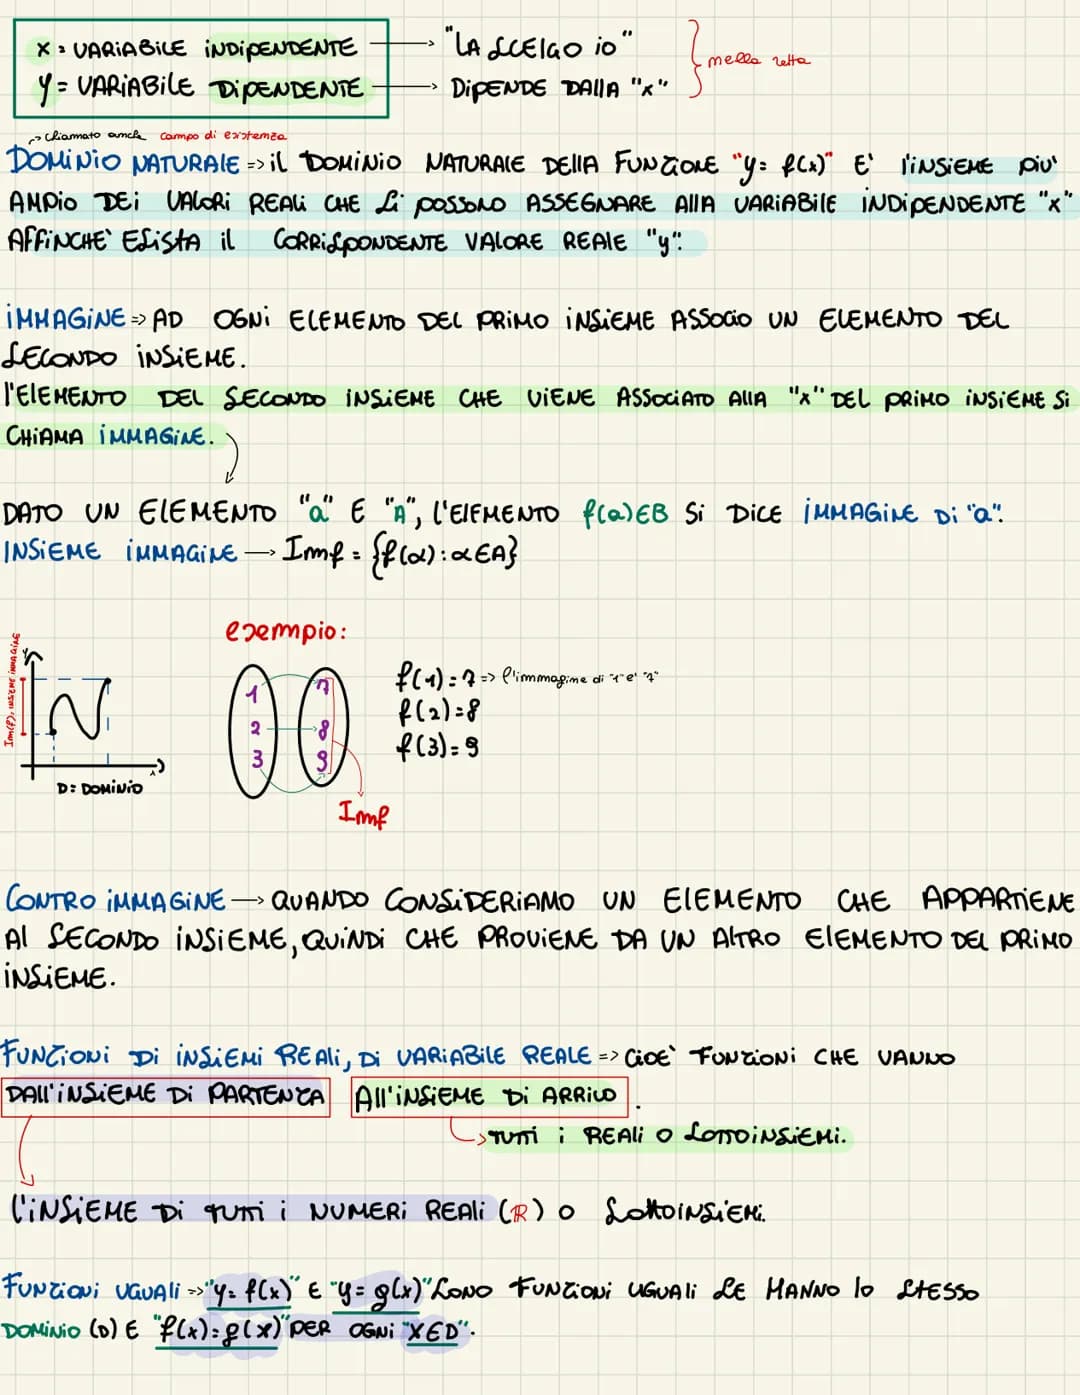 x = VARIABILE INDIPENDENTE → "LA SCELGO IO"
y = VARIABILE DIPENDENTE → DIPENDE DALLA "x"
nella retta
→ chiamato anche campo di esistenza
DOMINIO NATURALE => IL DOMINIO NATURALE DELLA FUNZIONE "y = f(x)" E' L'INSIEME PIU'
AMPIO DEI VALORI REALI CHE SI POSSONO ASSEGNARE ALLA VARIABILE INDIPENDENTE "x"
AFFINCHE' ESISTA IL CORRISPONDENTE VALORE REALE "y".
IMMAGINE => AD OGNI ELEMENTO DEL PRIMO INSIEME ASSOCIO UN ELEMENTO DEL
SECONDO INSIEME.
L'ELEMENTO DEL SECONDO INSIEME CHE VIENE ASSOCIATO ALLA "x" DEL PRIMO INSIEME SI
CHIAMA IMMAGINE.
DATO UN ELEMENTO "a" E "A", L'ELEMENTO f(a)∈B SI DICE IMMAGINE DI "a".
INSIEME IMMAGINE → Imf = {f(a) : a ∈ A}
esempio:
Im(f), INSIEME IMMAGINE
y
x
D = DOMINIO
1 7
2 8
3 9
Imf
f(1) = 7 => l'immagine di "1" e' "7"
f(2) = 8
f(3) = 9
CONTRO IMMAGINE → QUANDO CONSIDERIAMO UN ELEMENTO CHE APPARTIENE
AL SECONDO INSIEME, QUINDI CHE PROVIENE DA UN ALTRO ELEMENTO DEL PRIMO
INSIEME.
FUNZIONI DI INSIEMI REALI, DI VARIABILE REALE => CIOE' FUNZIONI CHE VANNO
DALL'INSIEME DI PARTENZA ALL'INSIEME DI ARRIVO.
→ TUTTI I REALI O SOTTOINSIEMI.
L'INSIEME DI TUTTI I NUMERI REALI (ℝ) O SOTTOINSIEMI.
FUNZIONI UGUALI => "y = f(x)" E "y = g(x)" SONO FUNZIONI UGUALI SE HANNO LO STESSO
DOMINIO (D) E "f(x) = g(x)" PER OGNI "X∈D".